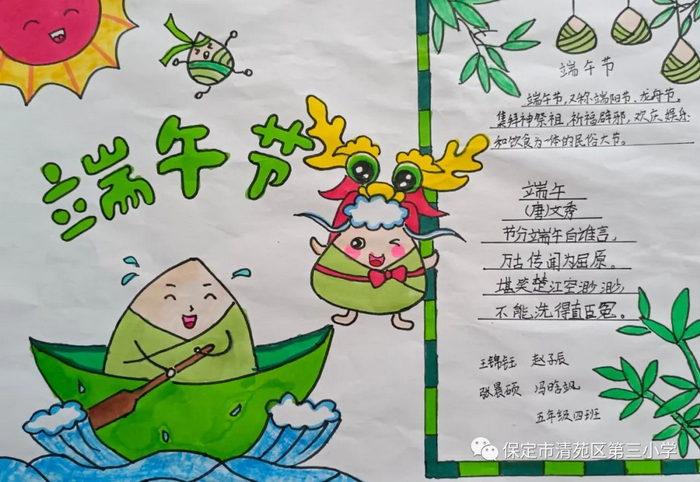 端午节
端午节
端午节,又称端阳节,龙舟节,
集拜神祭祖,祈福辟邪,欢庆娱乐
和饮食为一体的民俗大节。
端午
(唐)文秀
节分端午自谁言,
万古传闻为屈原。
堪笑楚江空渺渺
不能洗得直臣冤。
赵子辰
张晨硕
五年级四班
保定市清苑区第三小学